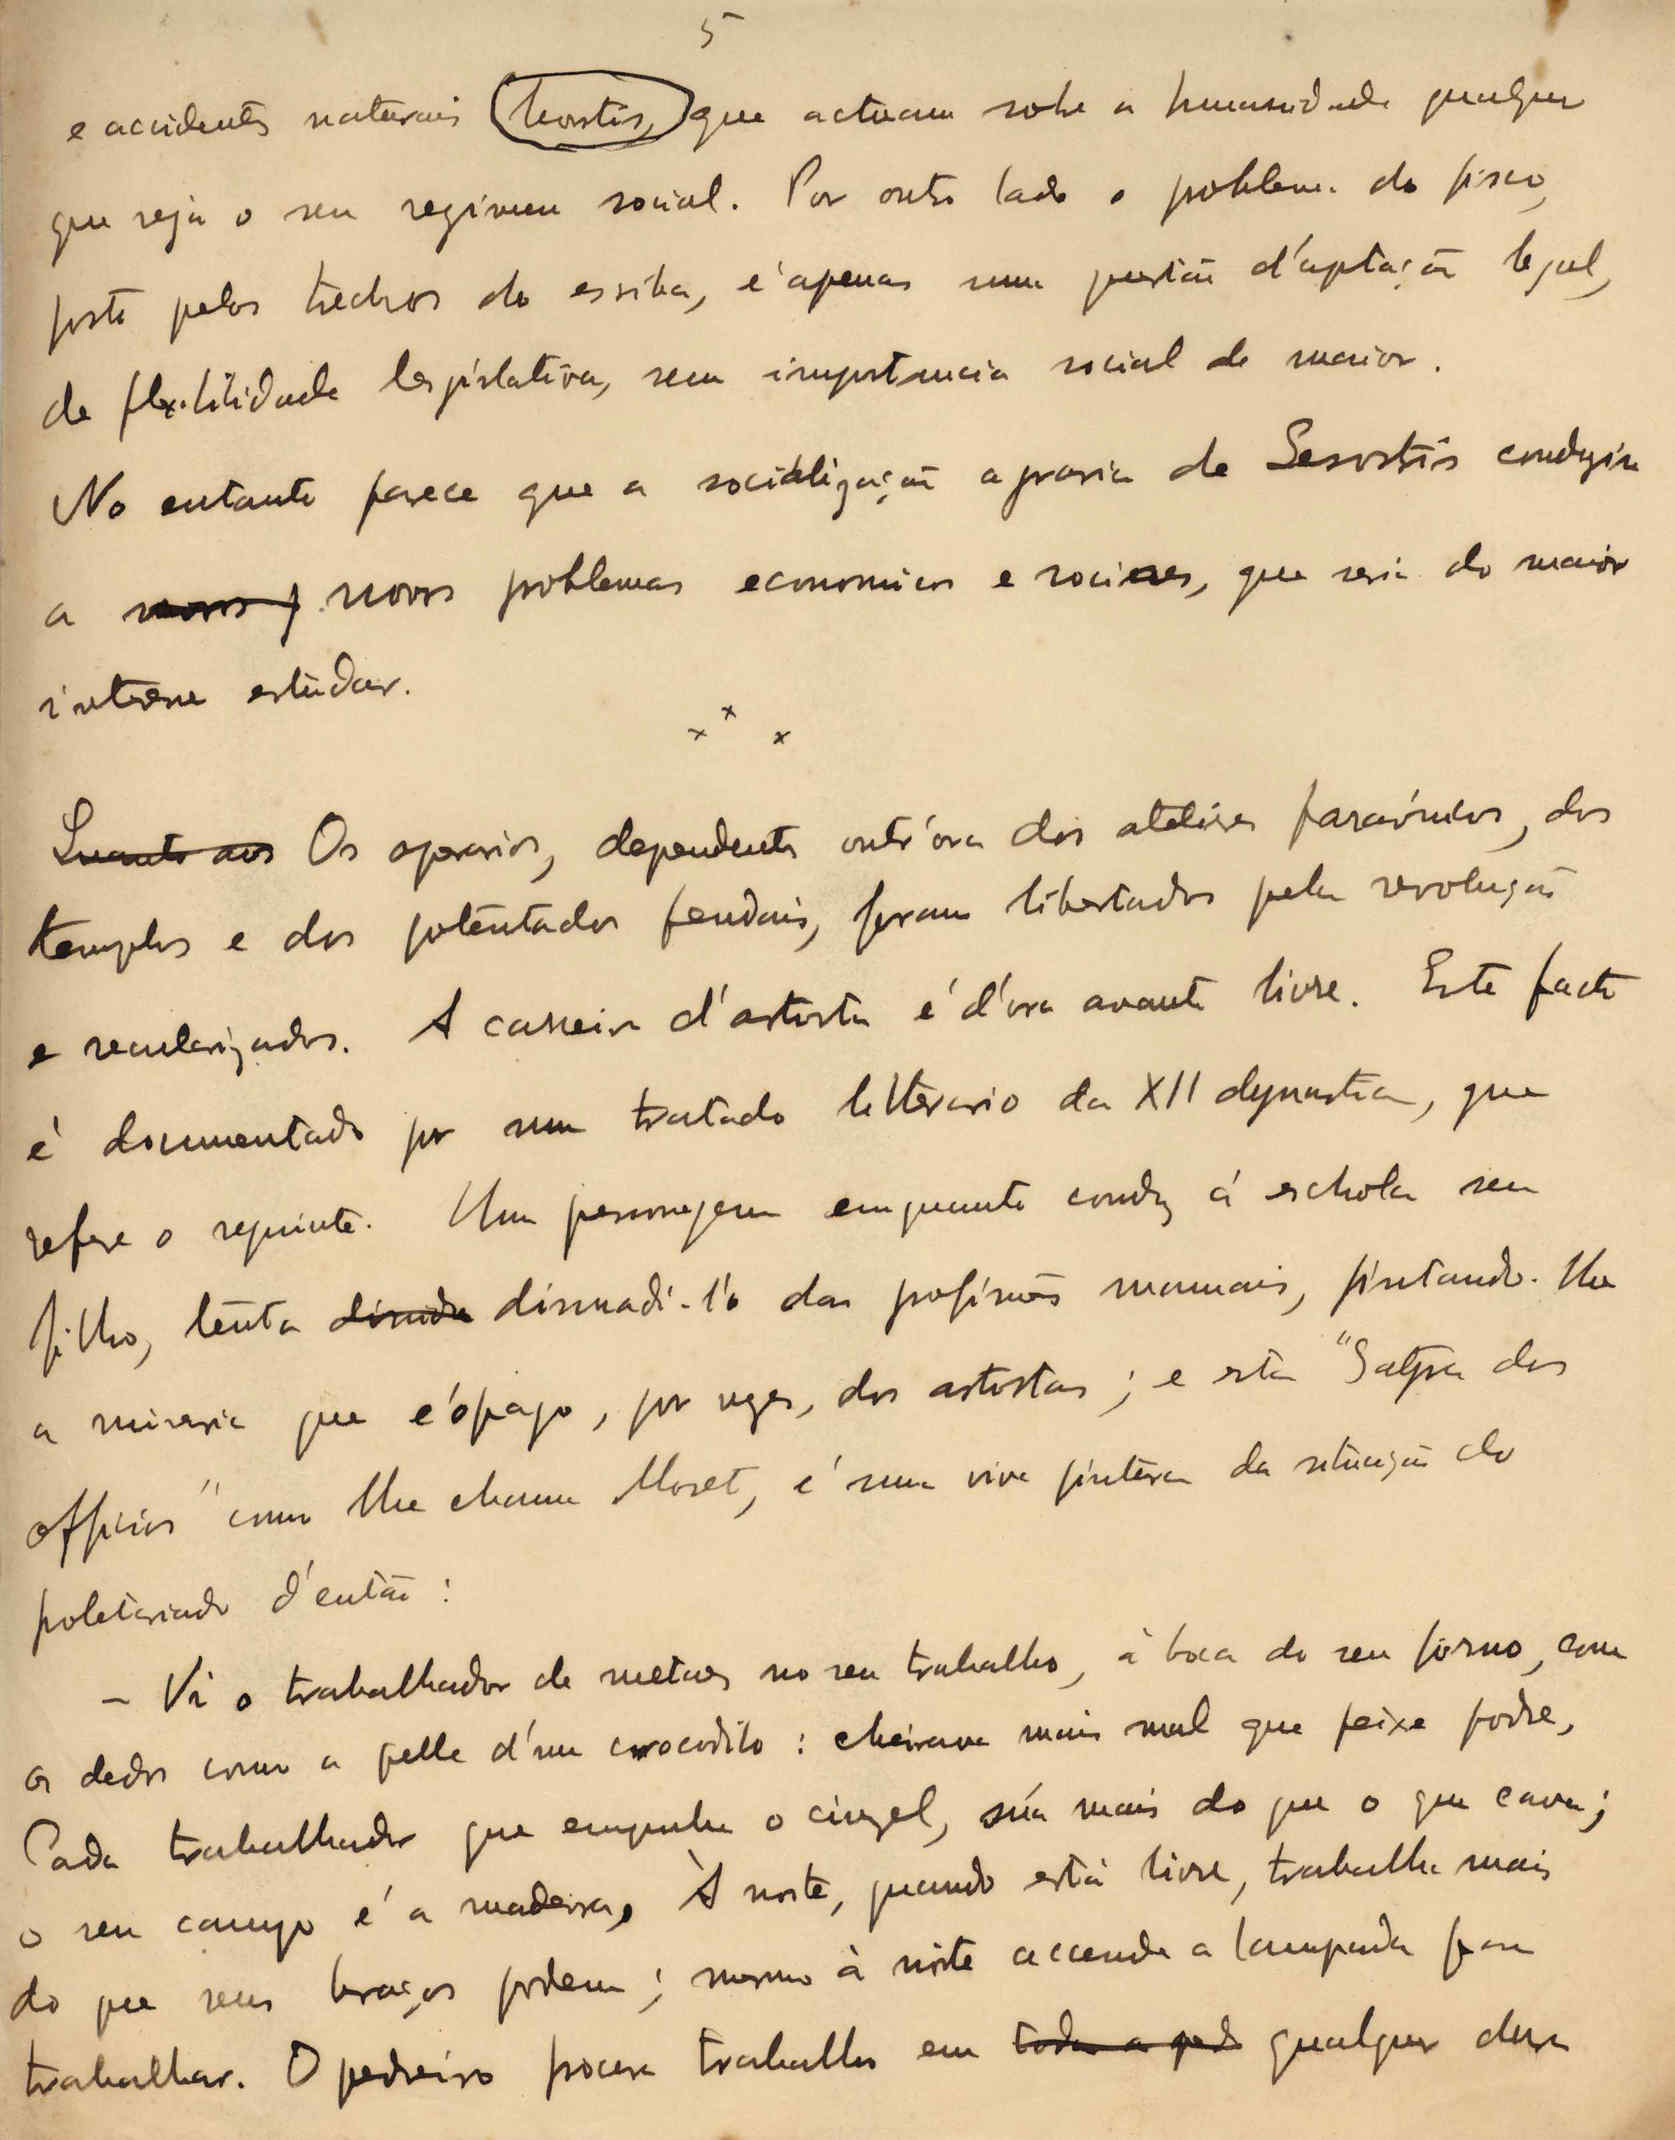 5
e accidentes naturais hostis, que actuam sobre a humanidade qualquer
que seja o seu regimen social. Por outro lado o problema do fisco,
posto pelos trechos do escriba, é apenas uma questão d'aptação legal,
de flexibilidade legislativa, sem importancia social de maior.
No entanto parece que a socialização agraria de Sesostris conduziu
a novos p novos problemas economicos e sociaes, que seria do maior
interesse estudar.
x x x
Quanto aos Os operarios, dependentes outr'ora dos ateliers faraónicos, dos
templos e dos potentados feudais, foram libertados pela revolução
e secularizados. A carreira d'artista é d'ora avante livre. Este facto
é documentado por um tratado litterario da XII dynastia, que
refere o seguinte. Um personagem emquanto conduz á eschola seu
filho, tenta dissuadi-l'o das profissões manuais, pintando-lhe
a miseria que é o pago, por vezes, dos artistas; e esta "Satyra dos
officios" como lhe chama Moret, é uma viva pintura da situação do
proletariado d'então:
- Vi o trabalhador de metaes no seu trabalho, á boca do seu forno, com
os dedos como a pelle d'um crocodilo: cheirava mais mal que peixe podre,
Cada trabalhador que empunha o cinzel, súa mais do que o que cava;
o seu campo é a madeira, À noite, quando está livre, trabalha mais
do que seus braços podem; mesmo à noite accende a lampada para
trabalhar. O pedreiro procura trabalho em toda a ped qualquer dura